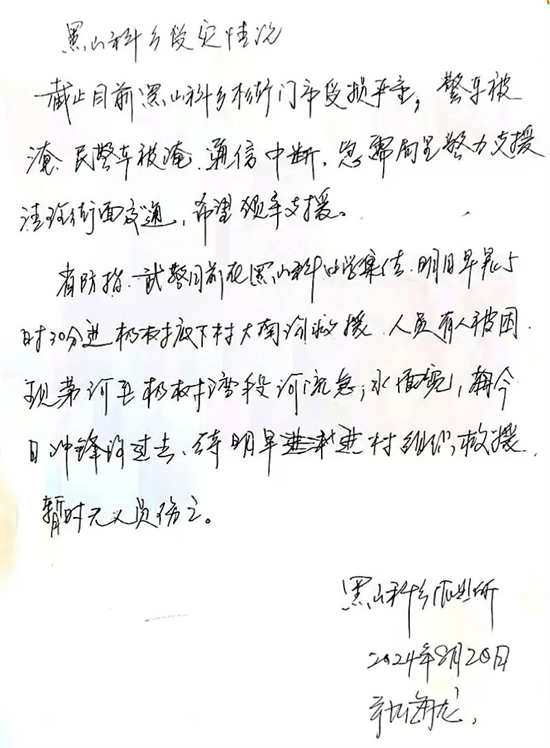 黑山科乡受灾情况
截止目前黑山科乡村街门市受损严重，警车被
淹、民警车被淹、通信中断、急需局里警力支援
清理街面交通，希望领车支援。
省防指、武警目前在黑山科中学集结、明日早晨5
时30分进杨树底下村大南沟救援、人员有人被困
现第河至杨树湾段河流急，水面宽，
日冲锋过去、待明早进村组织救援
暂时无人员伤亡。
黑山科乡派出所
2024年8月20日
海龙